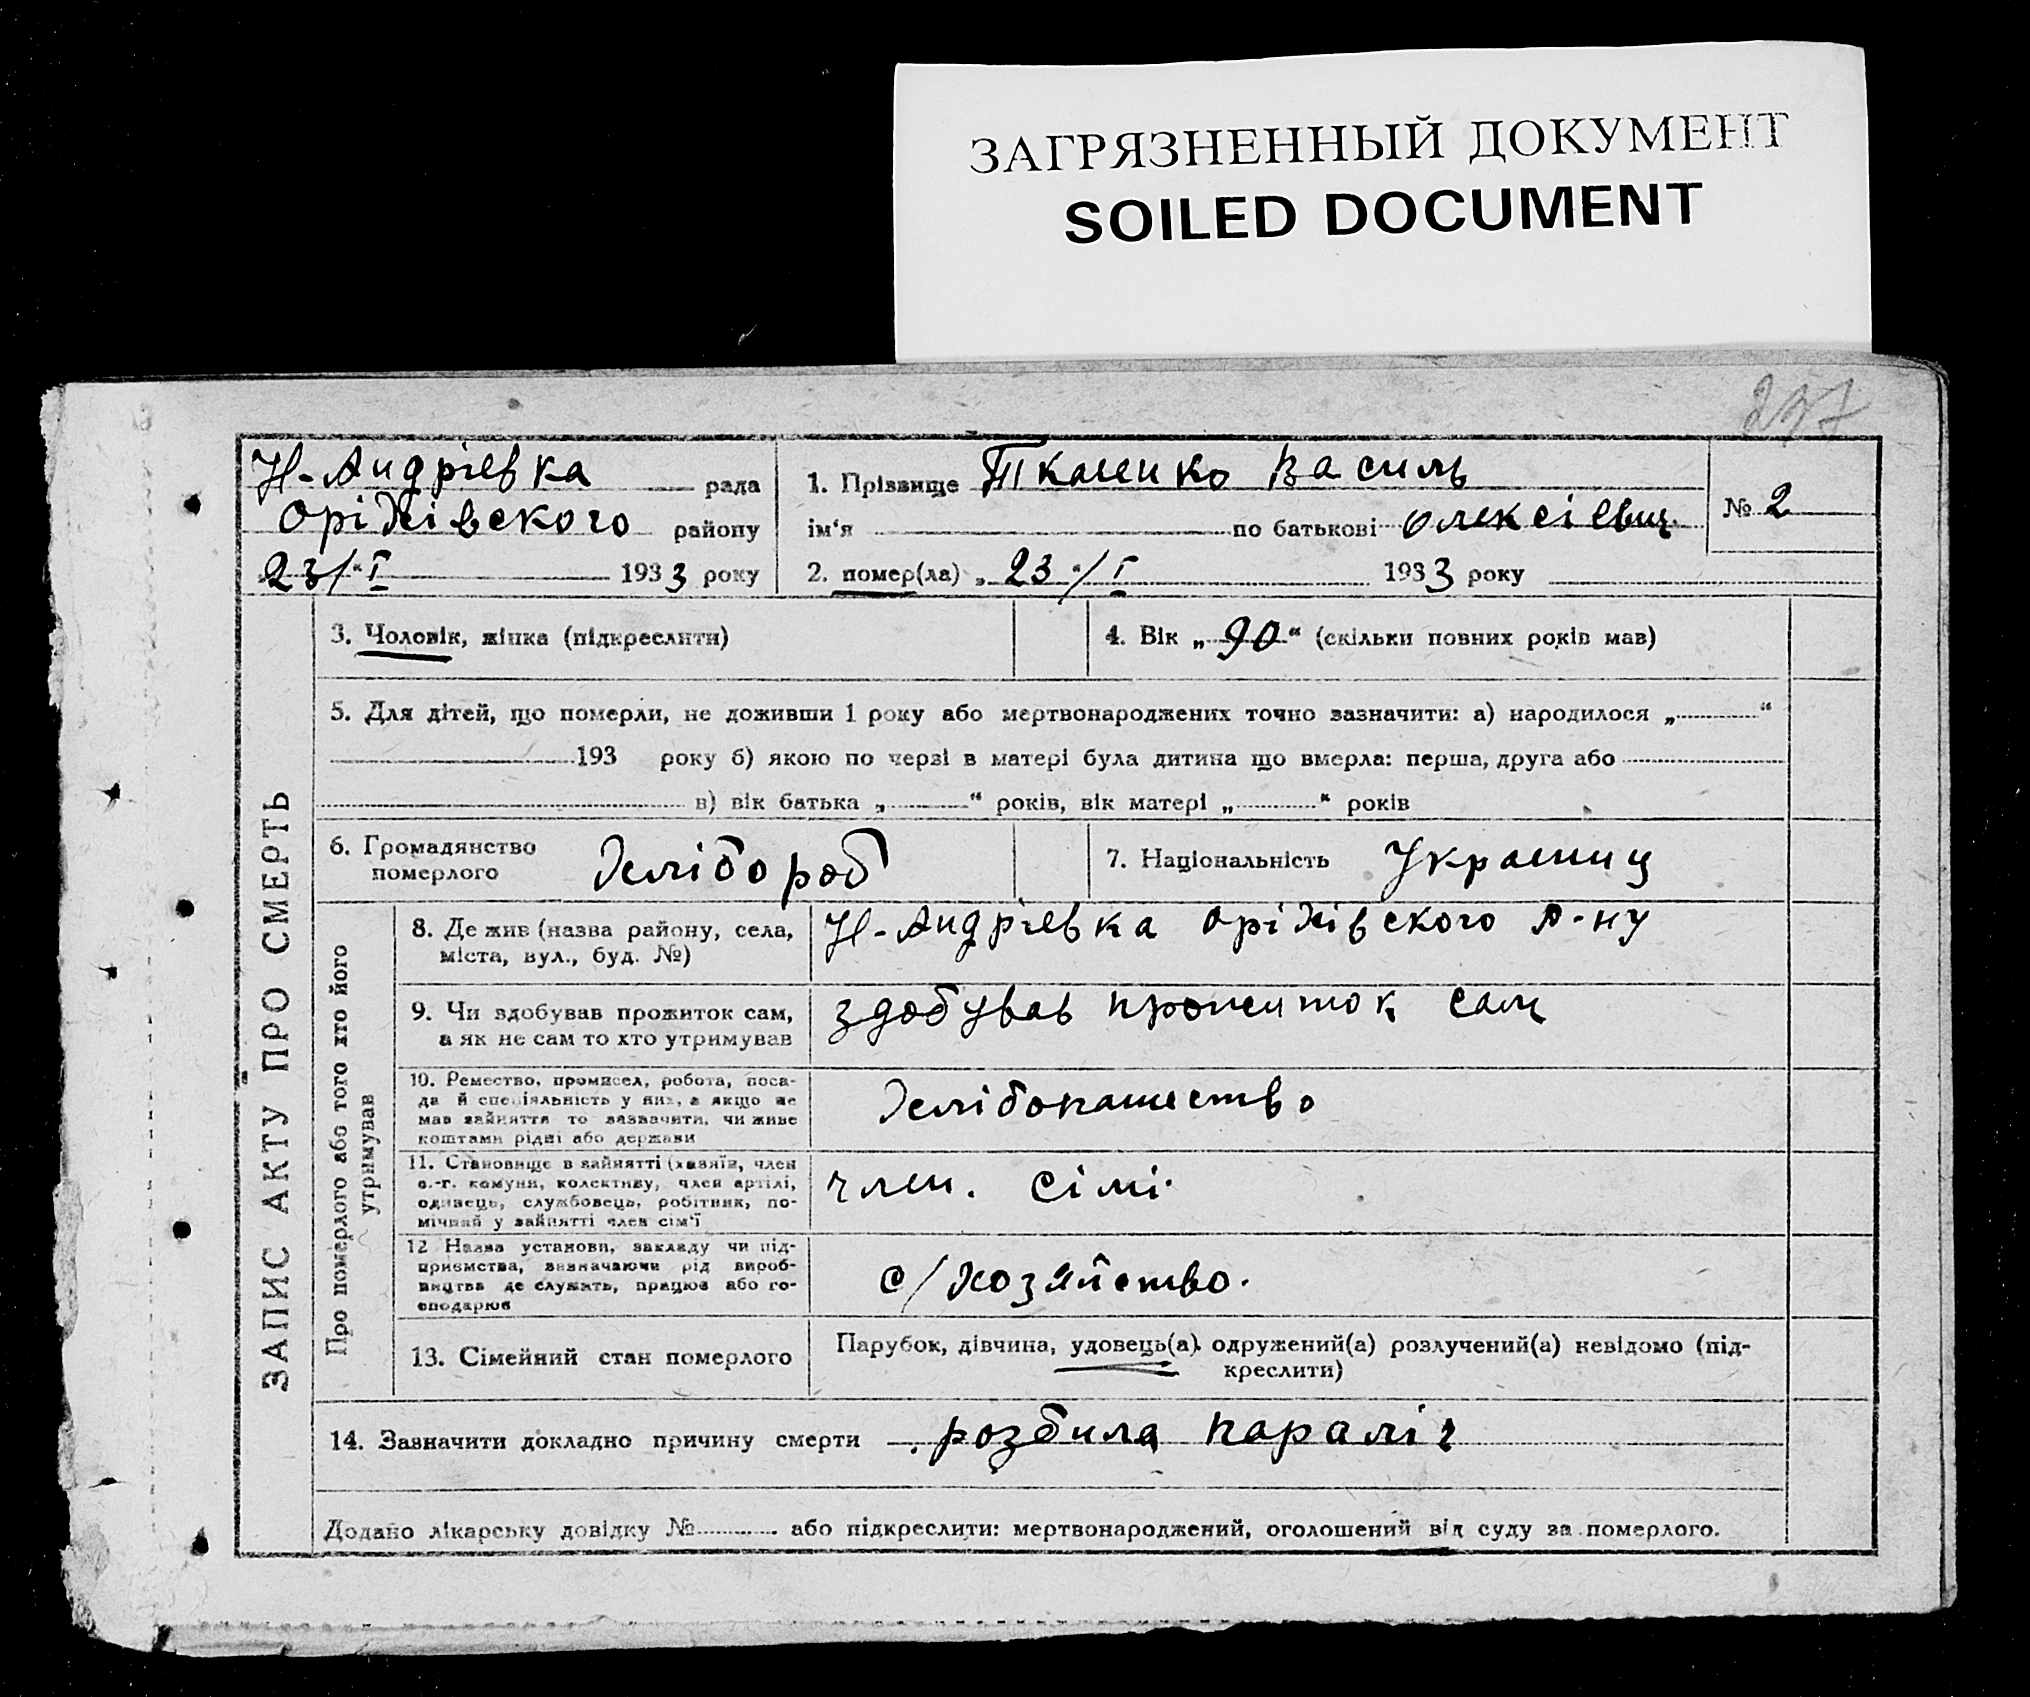 ЗАГРЯЗНЕННЫЙ ДОКУМЕНТ
SOILED DOCUMENT
237
Н-Андріевка рада
Оріхівського району
23/I 1933 року
1. Прізвище Ткаченко Василь
ім'я по батькові Олексієвич
2. помер(ла) „23"/I 1933 року
№ 2
ЗАПИС АКТУ ПРО СМЕРТЬ
3. Чоловік, жінка (підкреслити)
4. Вік „90" (скільки повних років мав)
5. Для дітей, що померли, не доживши 1 року або мертвонароджених точно зазначити: а) народилося „ "
193 року б) якою по черзі в матері була дитина що вмерла: перша, друга або
в) вік батька „ " років, вік матері „ " років
6. Громадянство
померлого
Хлібороб
7. Національність Украинц
Про померлого або того хто його
утримував
8. Де жив (назва району, села,
міста, вул., буд. №)
Н-Андріевка Оріхівского р-ну
9. Чи здобував прожиток сам,
а як не сам то хто утримував
здобував прожиток сам
10. Ремество, промисел, робота, поса-
да й спеціяльність у них, а якщо не
мав зайняття то зазначити, чи живе
коштами рідні або держави
Хлібопашество
11. Становище в зайнятті (хазяїн, член
с.-г. комуни, колективу, член артілі,
одинець, службовець, робітник, по-
мічний у зайнятті член сім'ї
член. сімі.
12 Назва установи, закладу чи під-
приємства, зазначаючи рід вироб-
ництва де служить, працює або го-
сподарює
с/хозяйство.
13. Сімейний стан померлого
Парубок, дівчина, удовець(а). одружений(а) розлучений(а) невідомо (під-
креслити)
14. Зазначити докладно причину смерти розбила параліч
Додано лікарську довідку № або підкреслити: мертвонароджений, оголошений від суду за померлого.